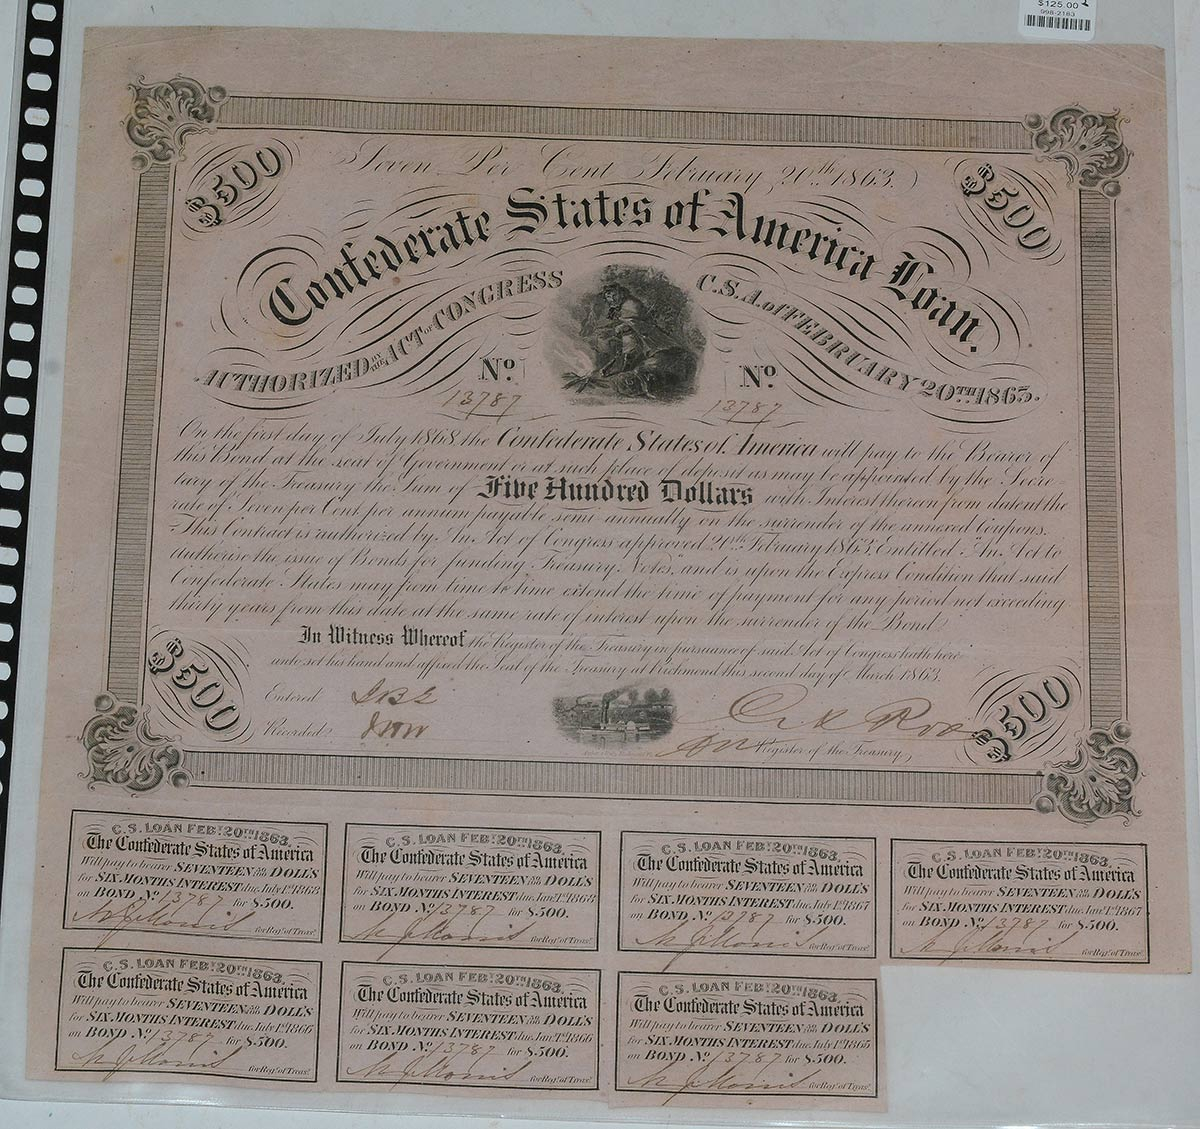 $125.00
998-2183
Seven Per Cent February 20th 1863.
$500 $500
Confederate States of America Loan.
AUTHORIZED BY THE ACT OF CONGRESS C.S.A. of FEBRUARY 20TH 1863.
No. No.
13787 13787
On the first day of July 1868 the Confederate States of America will pay to the Bearer of
this Bond, at the seat of Government or at such place of deposit as may be appointed by the Secre-
tary of the Treasury the Sum of Five Hundred Dollars with Interest thereon from date at the
rate of Seven per Cent per annum payable semi-annually on the surrender of the annexed Coupons.
This Contract is authorized by An Act of Congress approved 20th February 1863, Entitled "An Act to
authorise the issue of Bonds for funding Treasury Notes, and is upon the Express Condition that said
Confederate States may from time to time extend the time of payment for any period not exceeding
thirty years from this date at the same rate of interest upon the surrender of the Bond
In Witness Whereof the Register of the Treasury in pursuance of said Act of Congress hath here-
unto set his hand and affixed the Seal of the Treasury at Richmond this second day of March 1863.
$500 $500
Entered
Recorded
Register of the Treasury
C.S. LOAN FEBY. 20TH 1863.
The Confederate States of America
Will pay to bearer SEVENTEEN 50/100 DOLL'S
for SIX MONTHS INTEREST due July 1st 1868
on BOND No. 13787 for $500.
for Regr. of Treasy.
C.S. LOAN FEBY. 20TH 1863.
The Confederate States of America
Will pay to bearer SEVENTEEN 50/100 DOLL'S
for SIX MONTHS INTEREST due Jany. 1st 1868
on BOND No. 13787 for $500.
for Regr. of Treasy.
C.S. LOAN FEBY. 20TH 1863.
The Confederate States of America
Will pay to bearer SEVENTEEN 50/100 DOLL'S
for SIX MONTHS INTEREST due July 1st 1867
on BOND No. 13787 for $500.
for Regr. of Treasy.
C.S. LOAN FEBY. 20TH 1863.
The Confederate States of America
Will pay to bearer SEVENTEEN 50/100 DOLL'S
for SIX MONTHS INTEREST due Jany. 1st 1867
on BOND No. 13787 for $500.
for Regr. of Treasy.
C.S. LOAN FEBY. 20TH 1863.
The Confederate States of America
Will pay to bearer SEVENTEEN 50/100 DOLL'S
for SIX MONTHS INTEREST due July 1st 1866
on BOND No. 13787 for $500.
for Regr. of Treasy.
C.S. LOAN FEBY. 20TH 1863.
The Confederate States of America
Will pay to bearer SEVENTEEN 50/100 DOLL'S
for SIX MONTHS INTEREST due Jany. 1st 1866
on BOND No. 13787 for $500.
for Regr. of Treasy.
C.S. LOAN FEBY. 20TH 1863.
The Confederate States of America
Will pay to bearer SEVENTEEN 50/100 DOLL'S
for SIX MONTHS INTEREST due July 1st 1865
on BOND No. 13787 for $500.
for Regr. of Treasy.